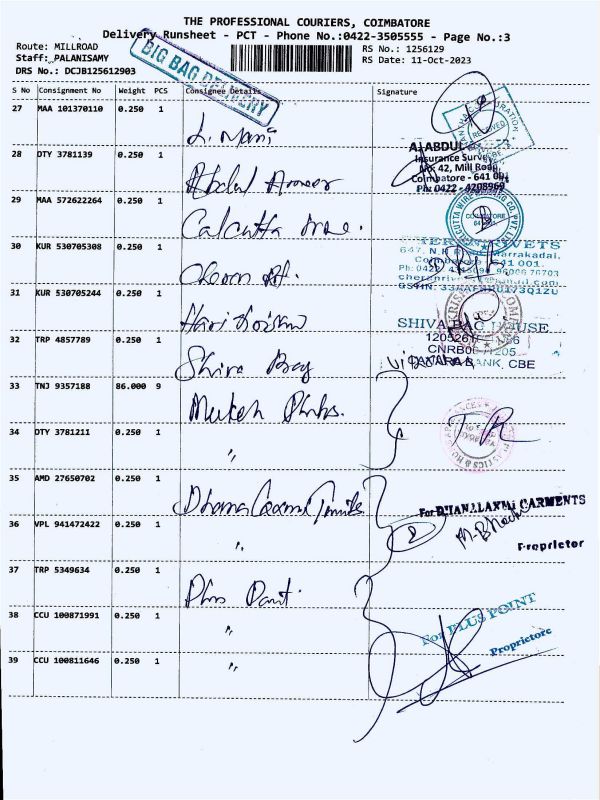 THE PROFESSIONAL COURIERS, COIMBATORE
Delivery Runsheet - PCT - Phone No.:0422-3505555 - Page No.:3
Route: MILLROAD
Staff: PALANISAMY
DRS No.: DCJB125612903
RS No.: 1256129
RS Date: 11-Oct-2023
BIG BAG DELIVERY
S No Consignment No Weight PCS Consignee Details Signature
27 MAA 101370110 0.250 1 L. Mani
RECEIVED
28 DTY 3781139 0.250 1 Abdul Ameer
A ABDUL
Insurance Survey
No: 42, Mill Road
Coimbatore - 641 001
Ph: 0422 - 4208969
29 MAA 572622264 0.250 1 Calcutta Wire.
CALCUTTA WIRE
COIMBATORE
30 KUR 530705308 0.250 1
RIVETS
647, N.H.
Marrakadai,
641 001.
Ph: 0422
96006 76703
31 KUR 530705244 0.250 1 Hari Krishna
32 TRP 4857789 0.250 1 Shiva Bag
SHIVA BAG HOUSE
CANARA BANK, CBE
33 TNJ 9357188 86.000 9 Mukesh
34 DTY 3781211 0.250 1 "
35 AMD 27650702 0.250 1
For DHANALAXMI GARMENTS
Proprietor
36 VPL 941472422 0.250 1 "
37 TRP 5349634 0.250 1 Plus Point
38 CCU 100871991 0.250 1 "
For PLUS POINT
Proprietore
39 CCU 100811646 0.250 1 "